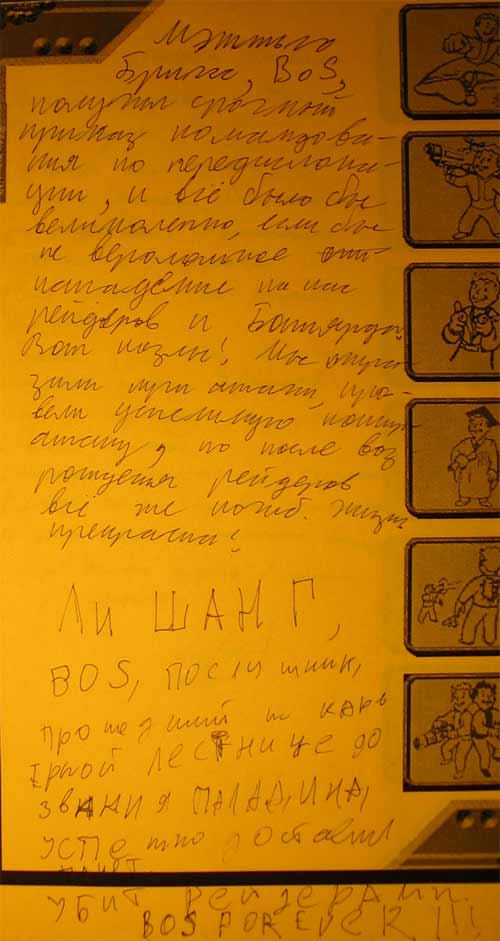 Мэттью
Бриггс, BoS,
получил срочный
приказ командова-
ния по передислока-
ции, и всё было бы
великолепно, если бы
не вероломное
нападение на нас
рейдеров и
Вот козлы! Мы отра-
зили три атаки, про-
вели успешную контр
атаку, но после воз
рождения рейдеров
всё же погиб. Жизнь
прекрасна!
ЛИ ШАНГ,
BOS, ПОСЛУШНИК,
прошедший по карь
ерной лестнице до
звания ПАЛАДИНА,
УСПешно доставил
пакет.
УБИТ РЕЙДЕРАМИ.
BOS FOREVER !!!